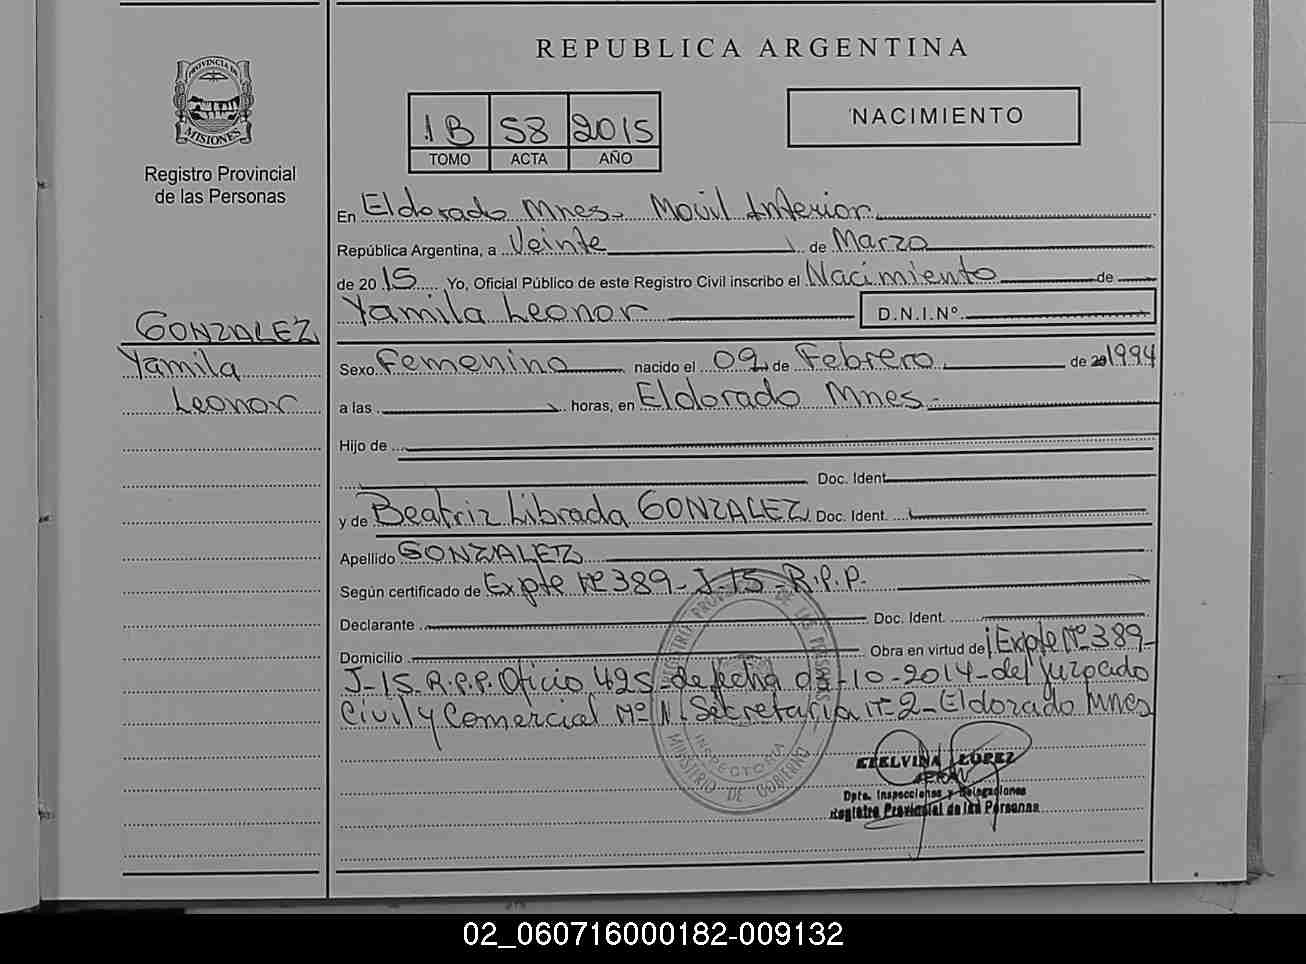 REPUBLICA ARGENTINA
PROVINCIA DE
MISIONES
Registro Provincial
de las Personas
1B 58 2015
TOMO ACTA AÑO
NACIMIENTO
En Eldorado Mnes. Movil Interior
República Argentina, a Veinte de Marzo
de 2015 Yo, Oficial Público de este Registro Civil inscribo el Nacimiento de
Yamila Leonor D.N.I.Nº
GONZALEZ
Yamila
Leonor
Sexo Femenino nacido el 09 de Febrero de 20 1994
a las horas, en Eldorado Mnes.
Hijo de
Doc. Ident.
y de Beatriz Librada GONZALEZ Doc. Ident.
Apellido GONZALEZ
Según certificado de Expte Nº 389-J-15-R.P.P.
Declarante Doc. Ident.
Domicilio Obra en virtud de Expte Nº 389-
J-15-R.P.P. Oficio 425-de fecha -10-2014-del Juzgado
Civil y Comercial Nº 1. Secretaria Nº 2-Eldorado Mnes
MINISTERIO DE GOBIERNO
INSPECTORIA
LOPEZ
Dpto. Inspecciones y Delegaciones
Registro Provincial de las Personas
02_060716000182-009132